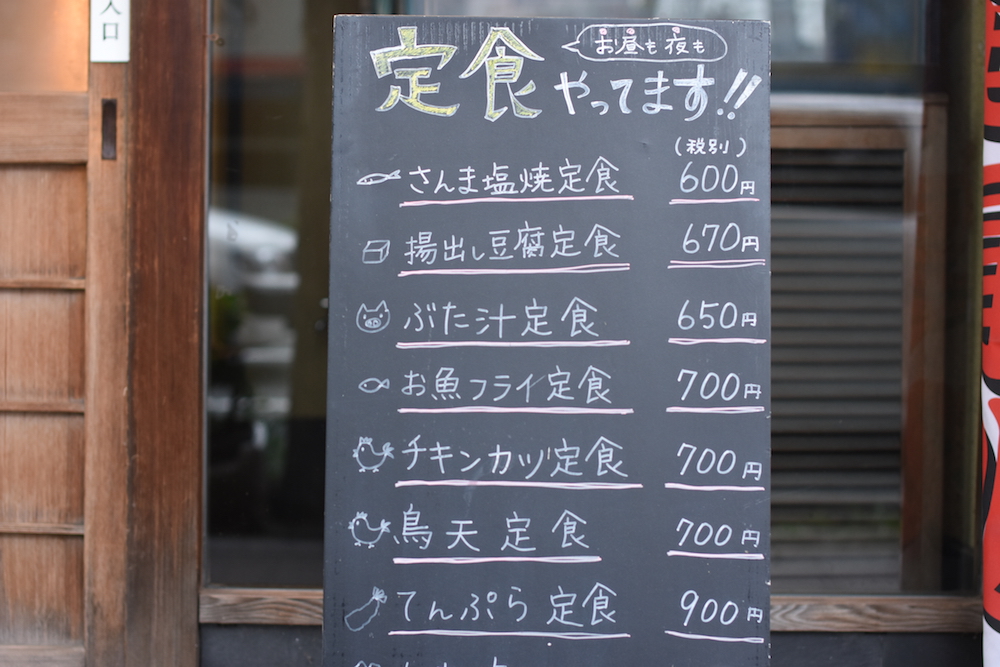 入口
お昼も夜も
定食やってます!!
(税別)
さんま塩焼定食 600円
揚出し豆腐定食 670円
ぶた汁定食 650円
お魚フライ定食 700円
チキンカツ定食 700円
鳥天定食 700円
てんぷら定食 900円